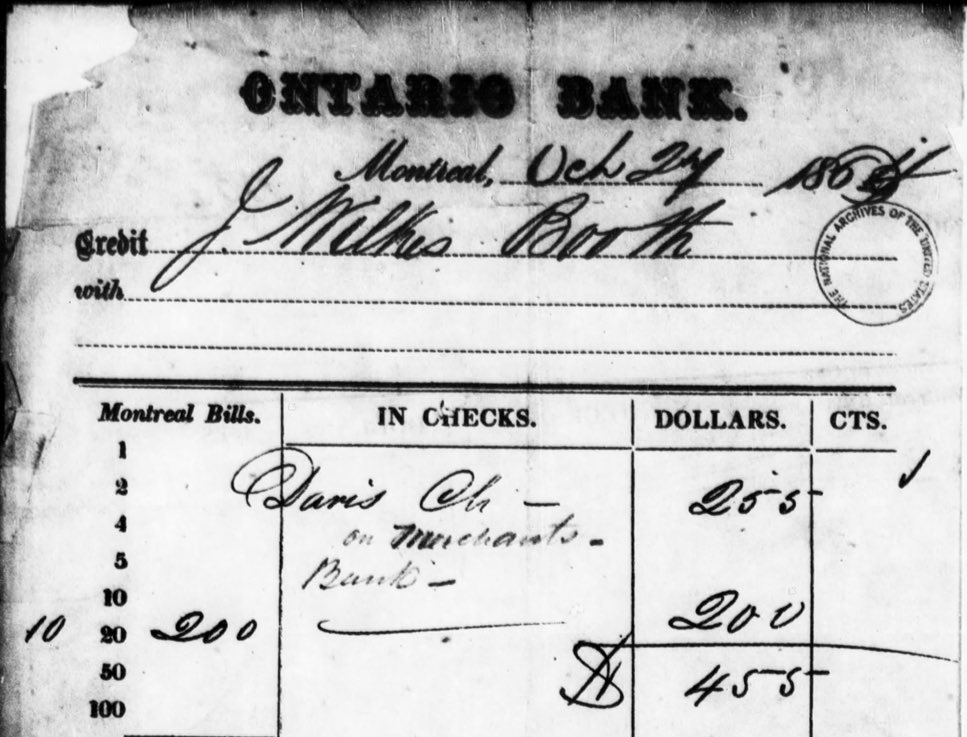 ONTARIO BANK.
Montreal, Oct 27 1864
Credit J Wilkes Booth
with
THE NATIONAL ARCHIVES OF THE UNITED STATES
Montreal Bills. IN CHECKS. DOLLARS. CTS.
1
2 Davis Ch — 255
4 on Merchants -
5 Bank -
10
10 20 200 200
50 $ 455
100